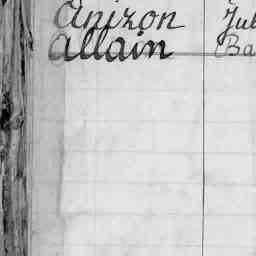 Anizon Jul
Allain Ba